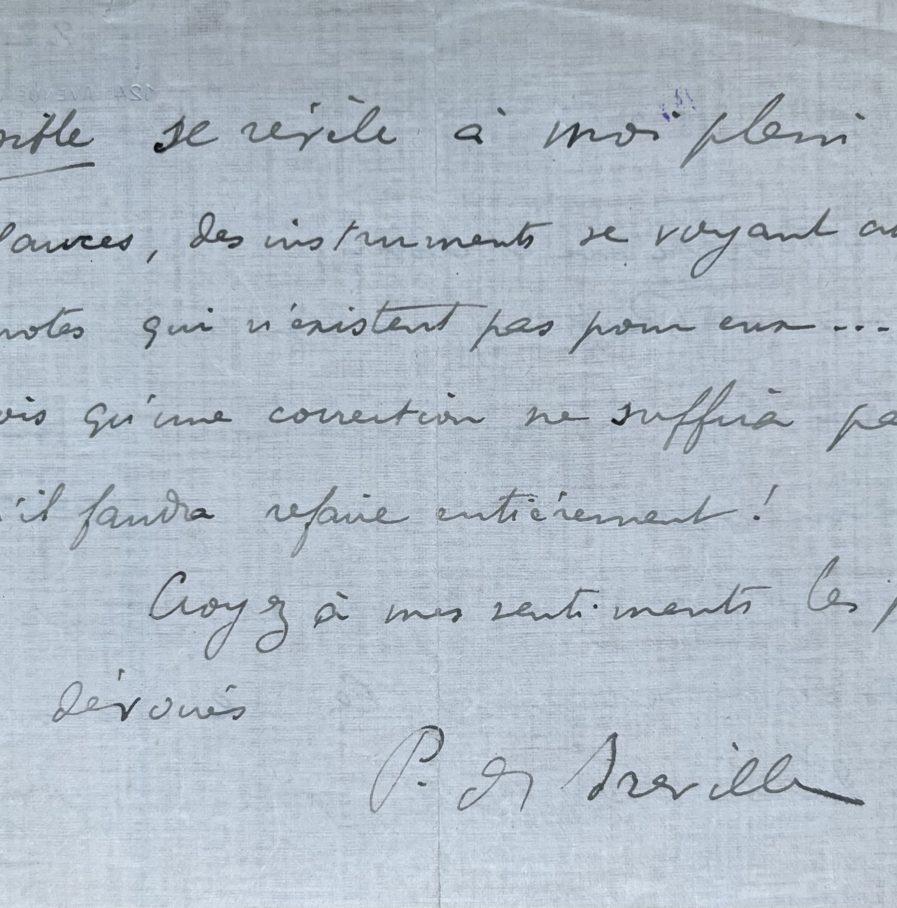 se révèle à moi plein
des instruments se voyant
notes qui n'existent pas pour eux...
qu'une correction ne suffira pa
'il faudra refaire entièrement !
Croyez à mes sentiments les p
dévoués
P. de Bréville